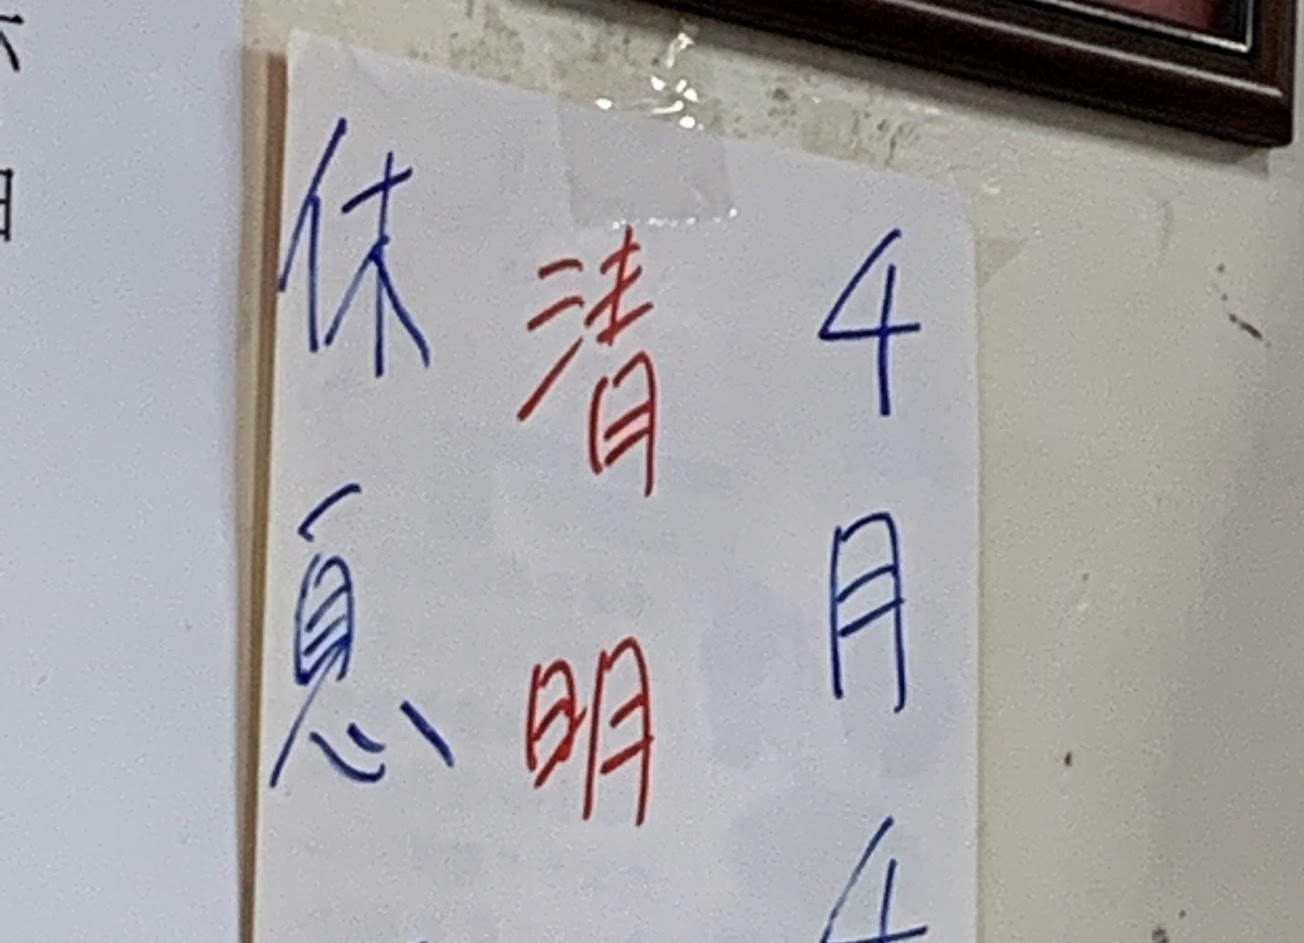 4月4
清明
休息